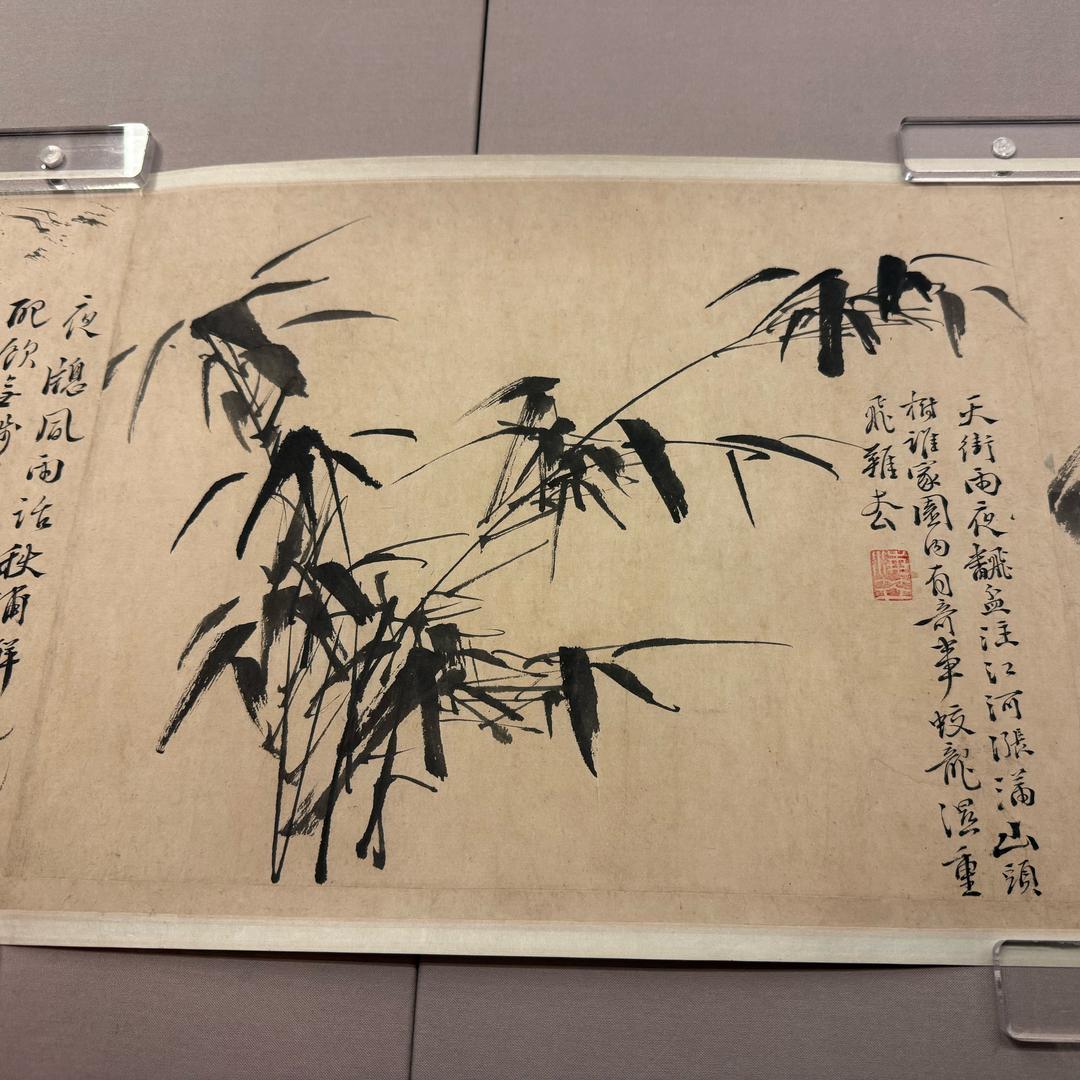 天街雨夜飜盆注江河漲滿山頭
樹誰家園内有奇事蛟龍濕重
飛難去
夜牕風雨話秋